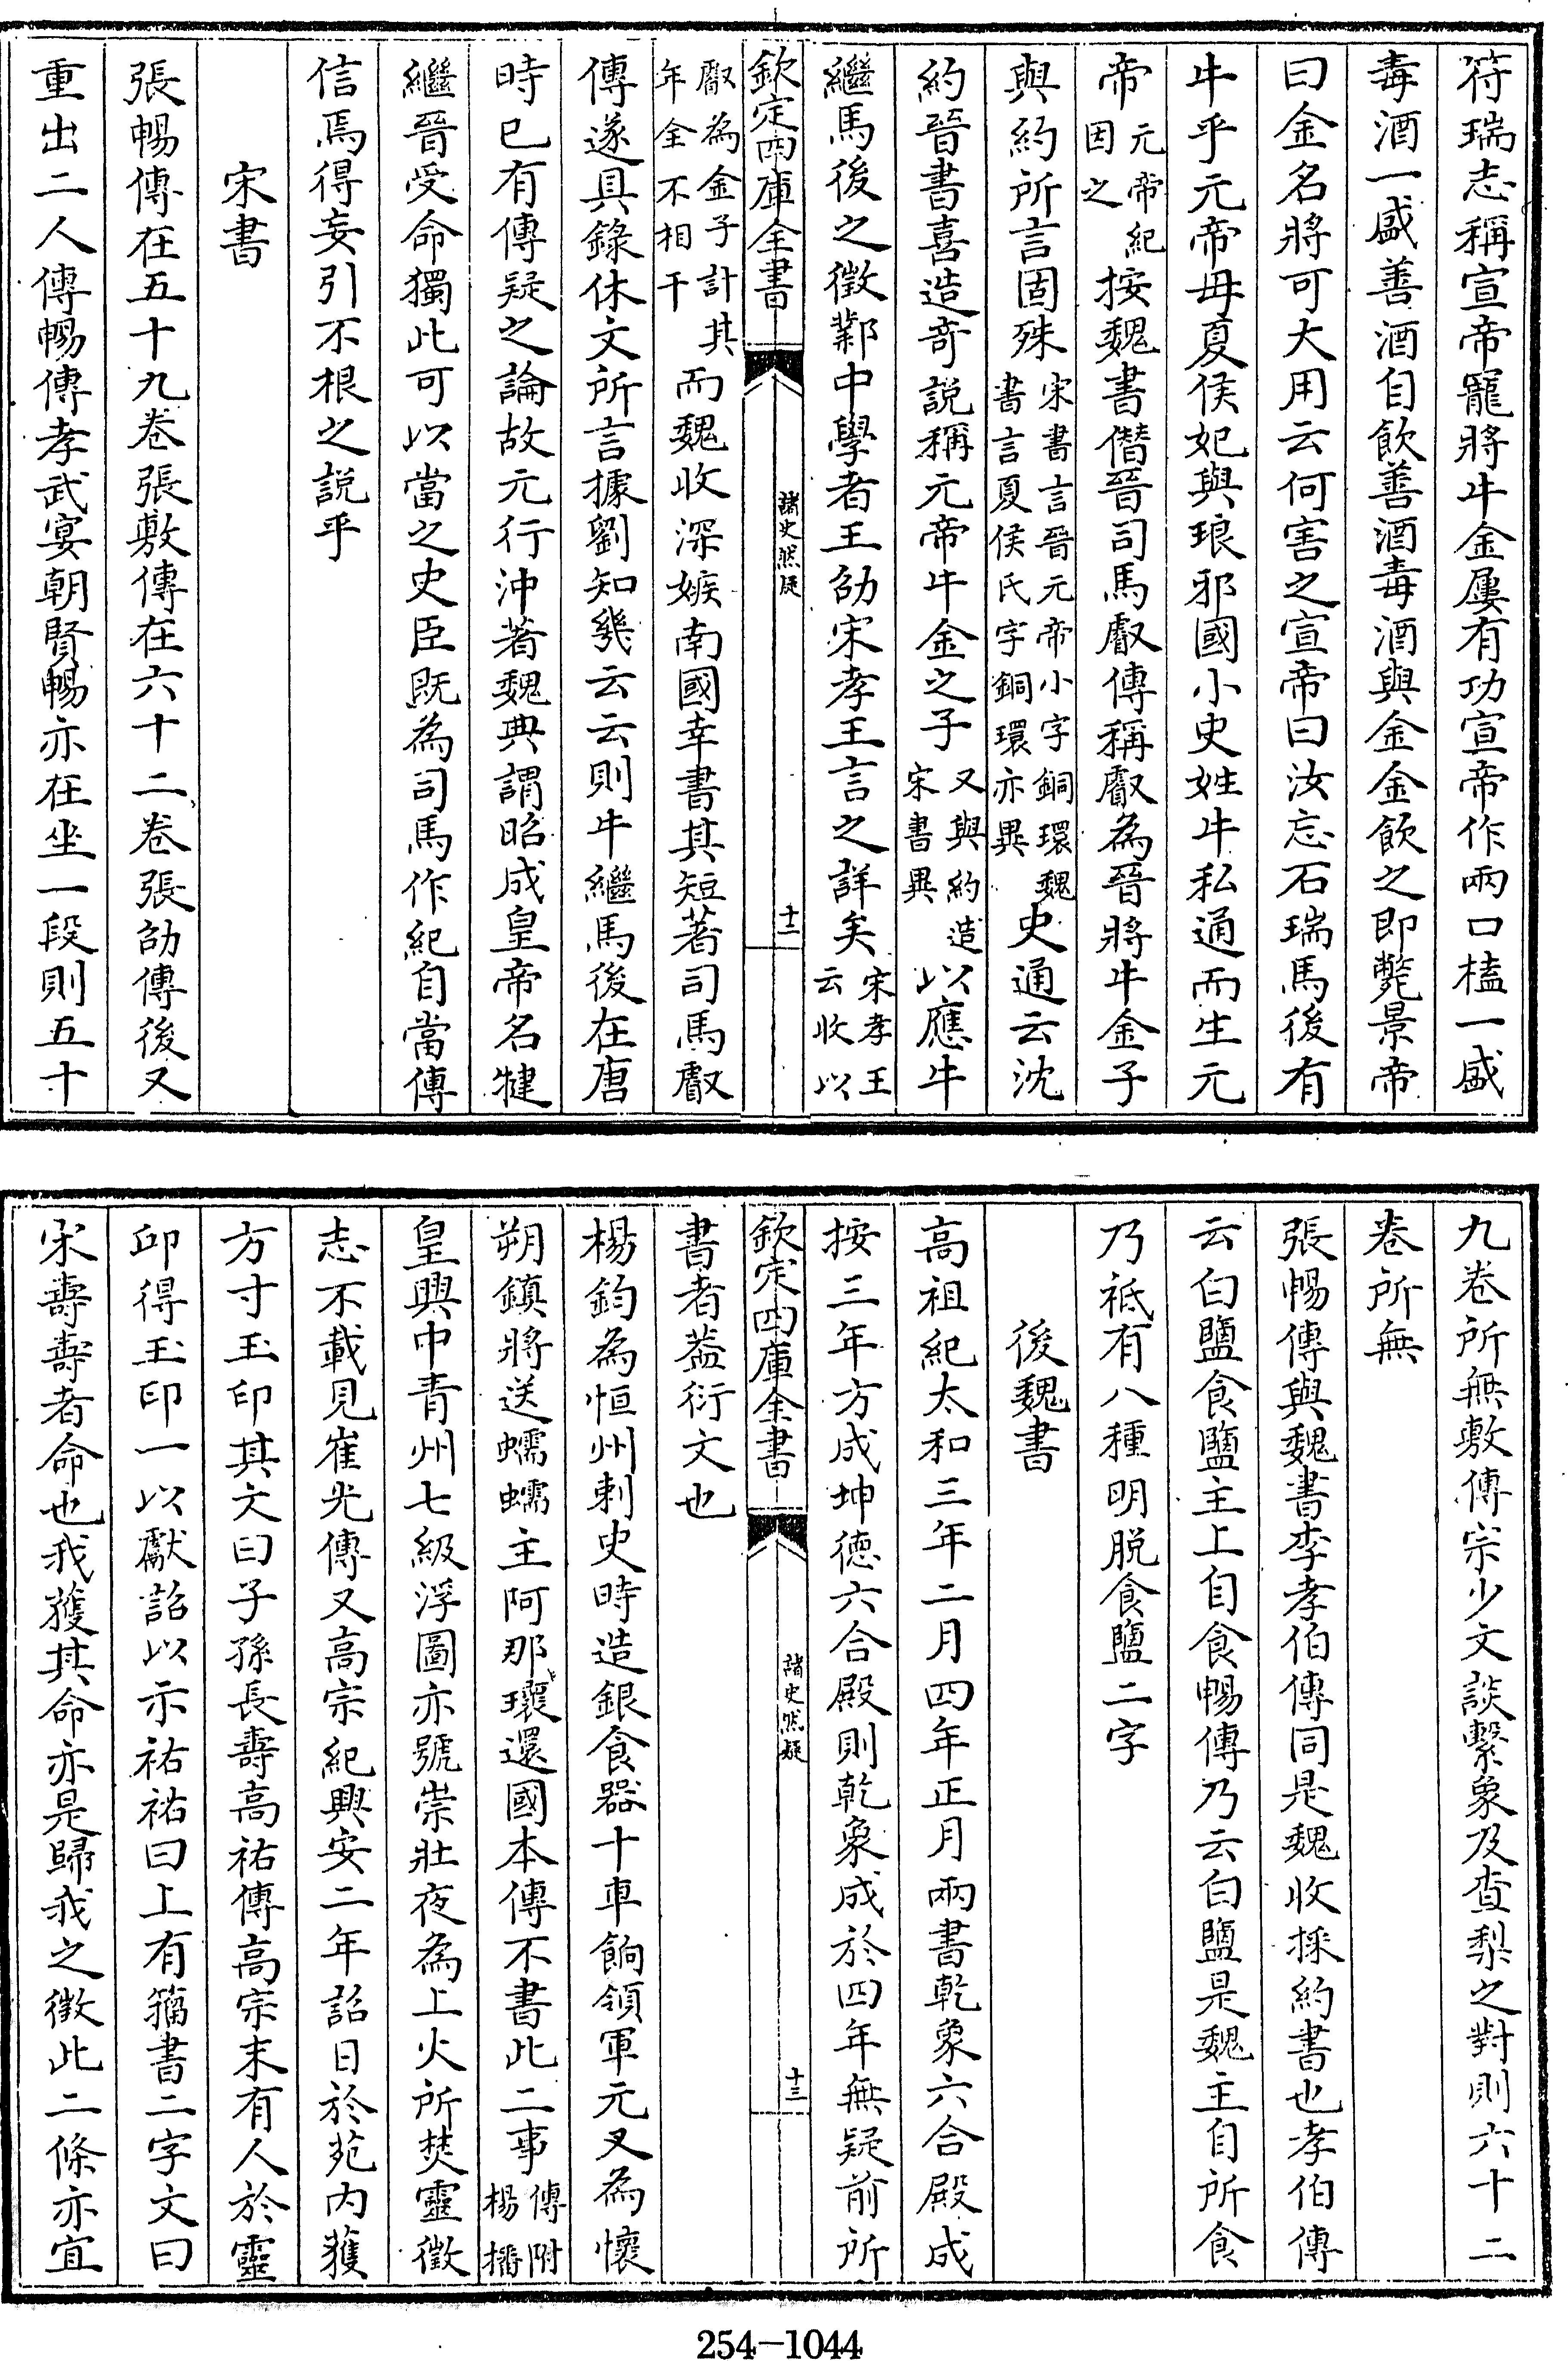 符瑞志稱宣帝寵將牛金屢有功宣帝作兩口榼一盛
毒酒一盛善酒自飲善酒毒酒與金金飲之即斃景帝
曰金名將可大用云何害之宣帝曰汝忘石瑞馬後有
牛乎元帝母夏侯妃與琅邪國小史姓牛私通而生元
帝元帝紀因之按魏書僭晉司馬叡傳稱叡為晉將牛金子
與約所言固殊宋書言晉元帝小字銅環魏書言夏侯氏字銅環亦異史通云沈
約晉書喜造奇説稱元帝牛金之子又與約造宋書異以應牛
繼馬後之徵鄴中學者王劭宋孝王言之詳矣宋孝王云收以
欽定四庫全書
諸史然疑
十二
叡為金子計其年全不相干而魏收深嫉南國幸書其短著司馬叡
傳遂具錄休文所言據劉知幾云云則牛繼馬後在唐
時已有傳疑之論故元行沖著魏典謂昭成皇帝名犍
繼晉受命獨此可以當之史臣既為司馬作紀自當傳
信焉得妄引不根之説乎
宋書
張暢傳在五十九卷張敷傳在六十二卷張劭傳後又
重出二人傳暢傳孝武宴朝賢暢亦在坐一段則五十
九卷所無敷傳宗少文談繫象及查梨之對則六十二
卷所無
張暢傳與魏書李孝伯傳同是魏收採約書也孝伯傳
云白鹽食鹽主上自食暢傳乃云白鹽是魏主自所食
乃祗有八種明脱食鹽二字
後魏書
高祖紀太和三年二月四年正月兩書乾象六合殿成
按三年方成坤德六合殿則乾象成於四年無疑前所
欽定四庫全書
諸史然疑
十三
書者葢衍文也
楊鈞為恒州刺史時造銀食器十車餉領軍元叉為懷
朔鎮將送蠕蠕主阿那瓌還國本傳不書此二事傳附楊播
皇興中青州七級浮圖亦號崇壯夜為上火所焚靈徵
志不載見崔光傳又高宗紀興安二年詔日於苑内獲
方寸玉印其文曰子孫長壽高祐傳高宗末有人於靈
邱得玉印一以獻詔以示祐祐曰上有籀書二字文曰
宋壽壽者命也我獲其命亦是歸我之徵此二條亦宜
254-1044